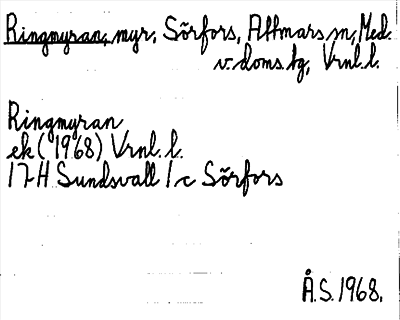 Ringmyran, myr, Sörfors, Attmars sn, Med.
v. doms. hg, Vrnl. l.
Ringmyran
ek (1968) Vrnl. l.
17H Sundsvall 1c Sörfors
Å.S. 1968.